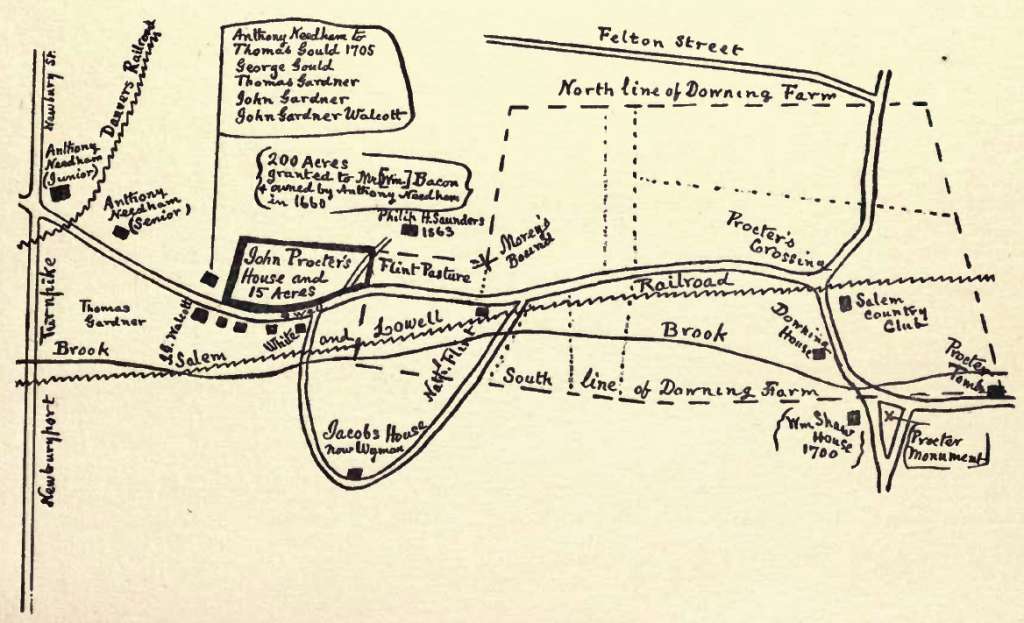 Newbury St.
Danvers Railroad
Anthony Needham to
Thomas Gould 1705
George Gould
Thomas Gardner
John Gardner
John Gardner Walcott
Felton Street
North line of Downing Farm
Anthony
Needham
(Junior)
Anthony
Needham
(Senior)
200 Acres
granted to Mr. [Wm.] Bacon
+ owned by Anthony Needham
in 1660
Philip H. Saunders
1863
Moren's
Bounse
John Procter's
House and
15 Acres
Flint Pasture
Procter's
Crossing
Turnpike
Thomas
Gardner
J.G. Walcott
White
Salem and Lowell Railroad
Brook
Brook
Nath. Flint
Downing
House
Salem
Country
Club
Procter
Tombs
South line of Downing Farm
Newburyport
Jacobs House
now Wyman
Wm Shaw
House
1700
Procter
Monument